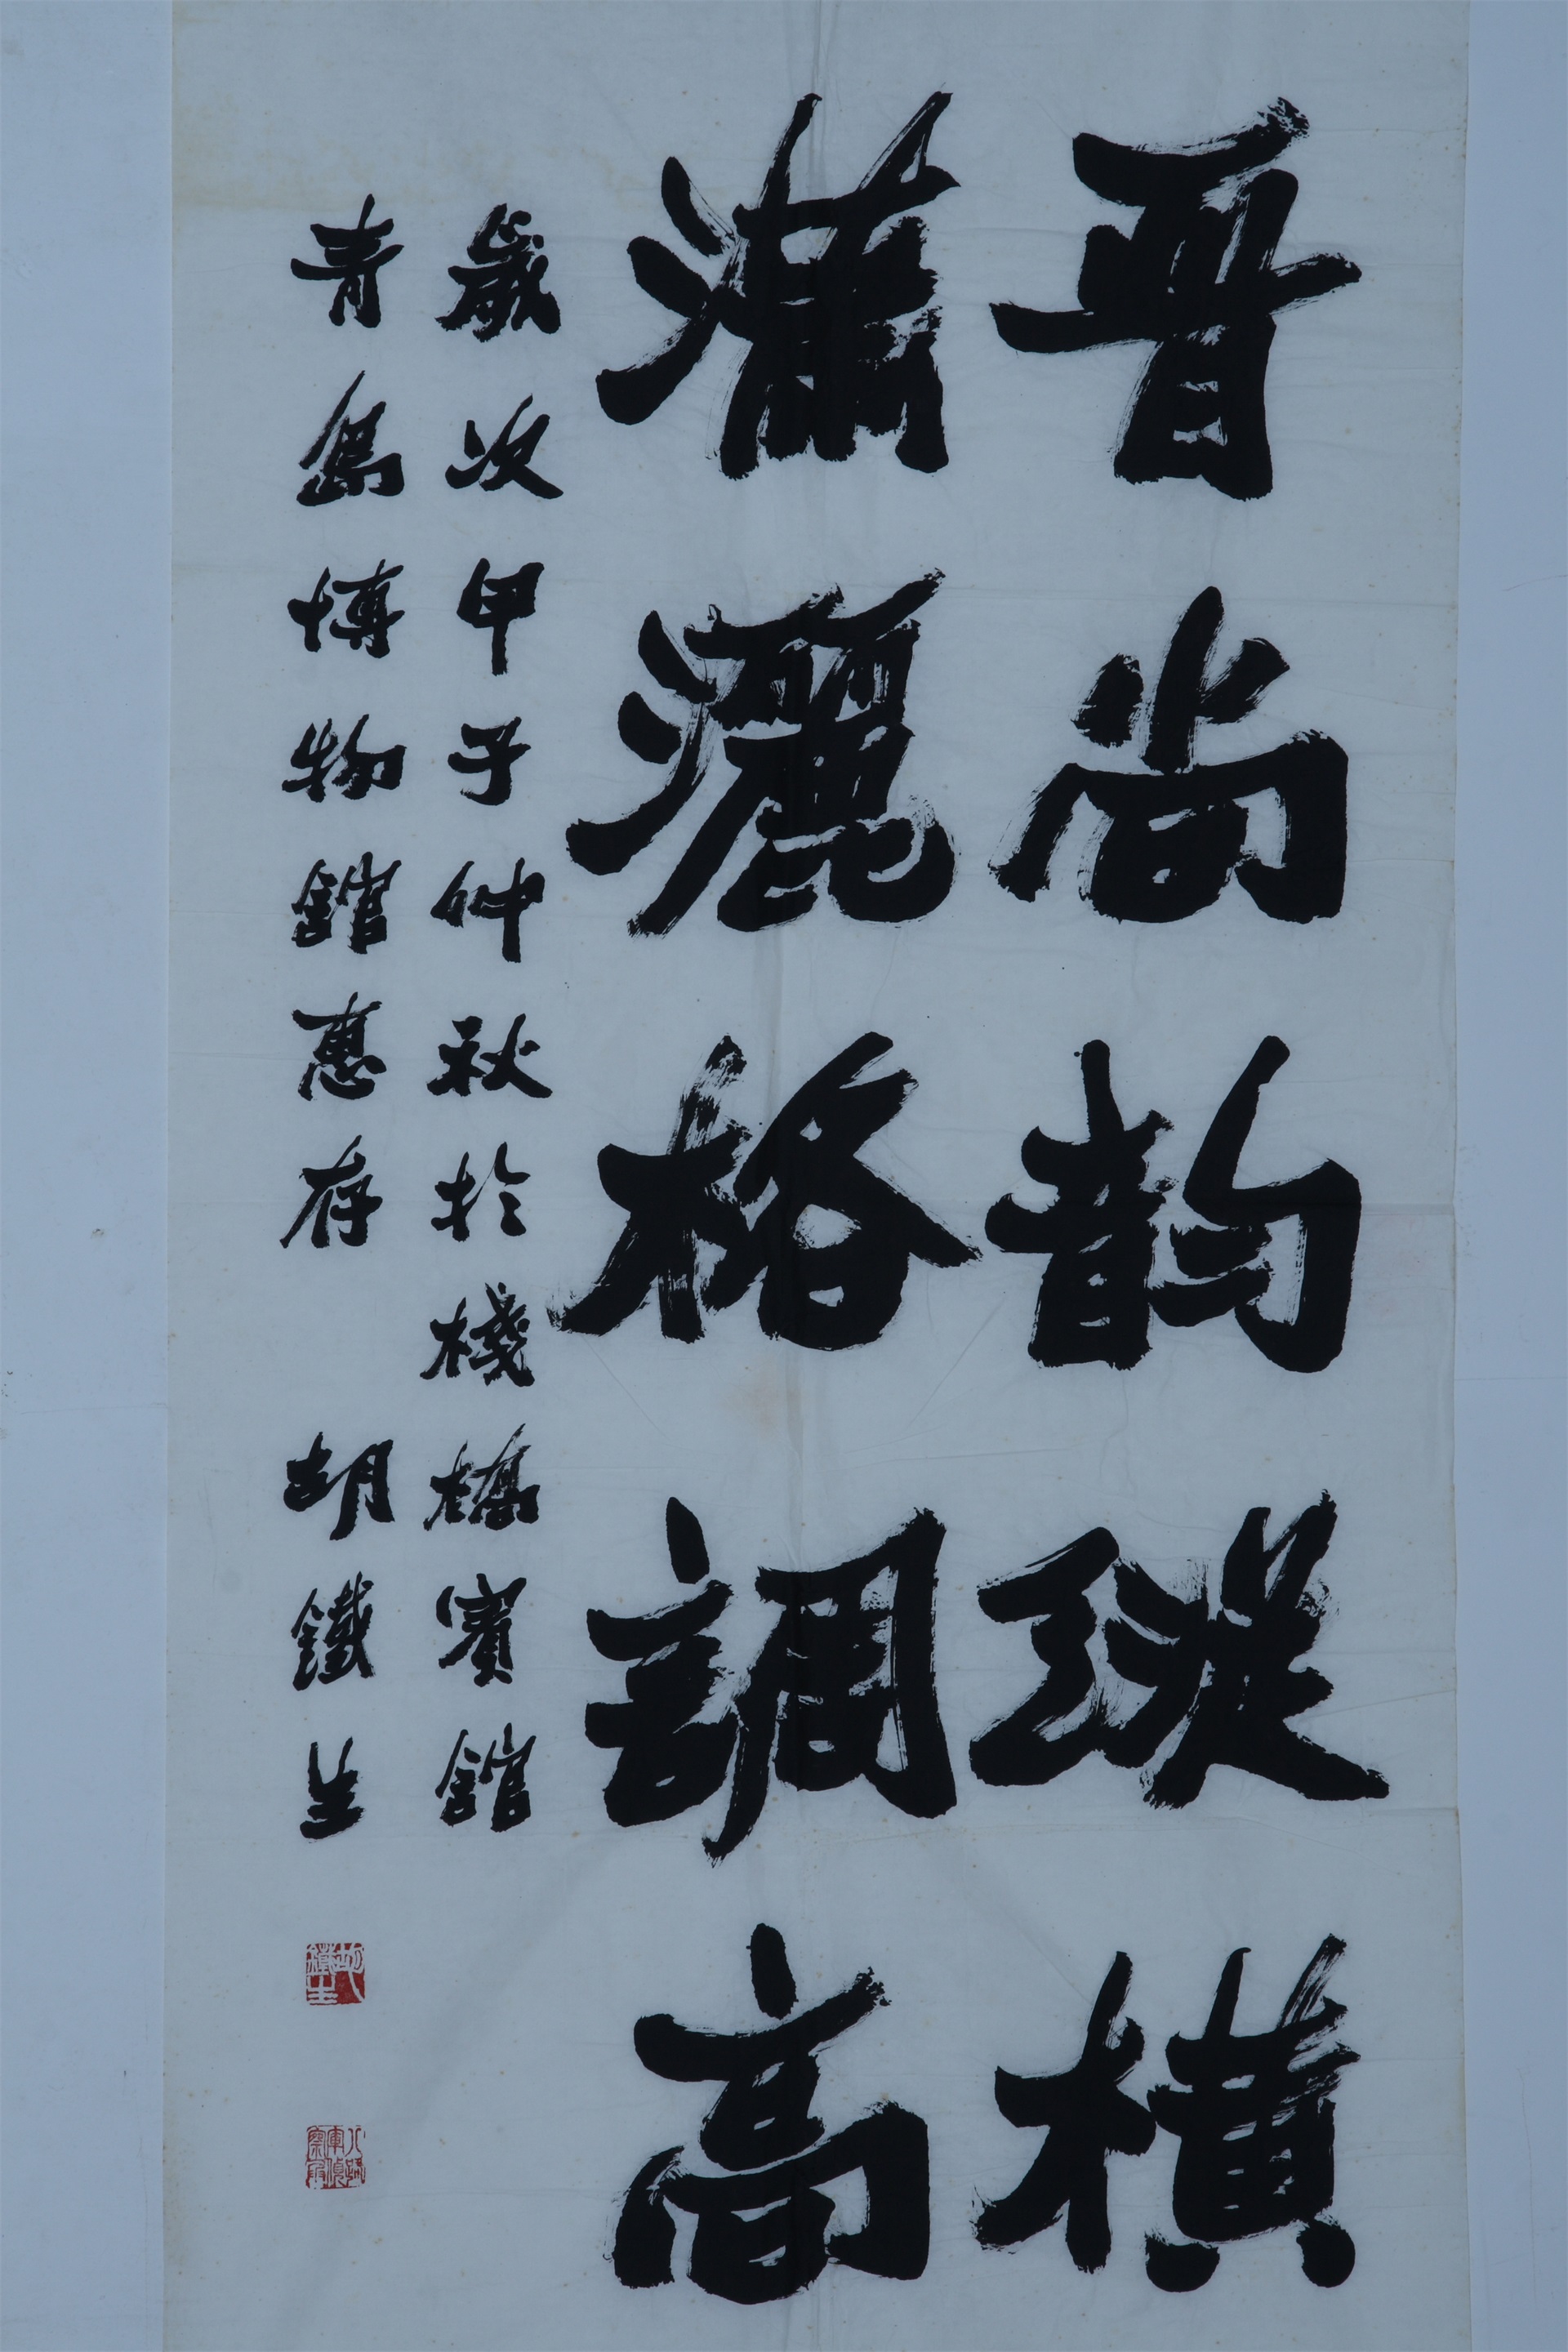 晋尚韵縱橫
瀟灑格調高
歲次甲子仲秋於棧橋賓館
青島博物館惠存 胡鐵生
胡鐵生